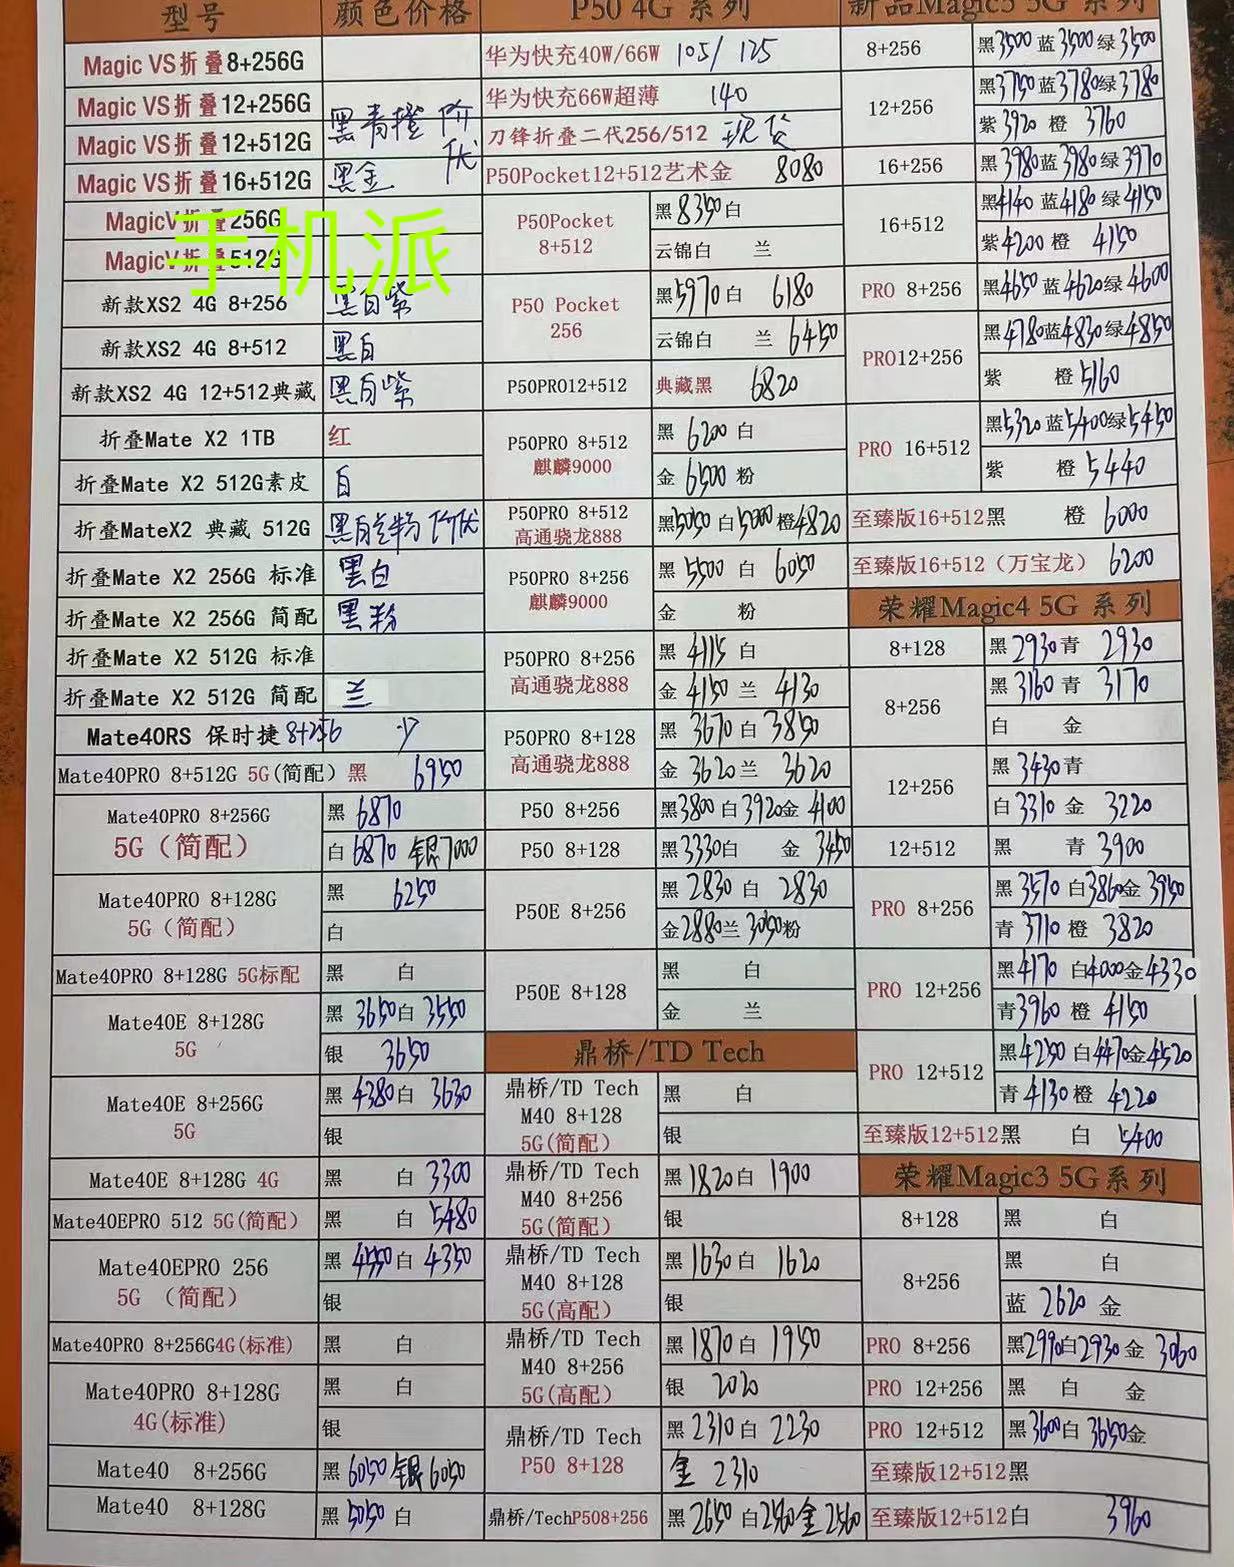 型号 颜色价格
Magic VS折叠8+256G
Magic VS折叠12+256G
Magic VS折叠12+512G 黑青橙 价优
Magic VS折叠16+512G 黑金
MagicV折叠256G
MagicV折叠512G
手机派
新款XS2 4G 8+256 黑白紫
新款XS2 4G 8+512 黑白
新款XS2 4G 12+512典藏 黑白紫
折叠Mate X2 1TB 红
折叠Mate X2 512G素皮 白
折叠MateX2 典藏 512G 黑白兰粉 价优
折叠Mate X2 256G 标准 黑白
折叠Mate X2 256G 简配 黑粉
折叠Mate X2 512G 标准
折叠Mate X2 512G 简配 兰
Mate40RS 保时捷 8+256 少
Mate40PRO 8+512G 5G(简配) 黑 6950
Mate40PRO 8+256G 黑 6870
5G（简配） 白 6870 银 7000
Mate40PRO 8+128G 黑 6250
5G（简配） 白
Mate40PRO 8+128G 5G标配 黑 白
Mate40E 8+128G 黑 3650 白 3550
5G 银 3650
Mate40E 8+256G 黑 4380 白 3630
5G 银
Mate40E 8+128G 4G 黑 白 3300
Mate40EPRO 512 5G(简配) 黑 白 5480
Mate40EPRO 256 黑 4550 白 4350
5G （简配） 银
Mate40PRO 8+256G4G(标准) 黑 白
Mate40PRO 8+128G 黑 白
4G(标准) 银
Mate40 8+256G 黑 6050 银 6050
Mate40 8+128G 黑 5050 白
P50 4G 系列
华为快充40W/66W 105/ 125
华为快充66W超薄 140
刀锋折叠二代256/512 现货
P50Pocket12+512艺术金 8080
P50Pocket 黑 8350 白
8+512 云锦白 兰
P50 Pocket 黑 5970 白 6180
256 云锦白 兰 6450
P50PRO12+512 典藏黑 6820
P50PRO 8+512 黑 6200 白
麒麟9000 金 6500 粉
P50PRO 8+512
高通骁龙888 黑 5050 白 5000 橙 4820
P50PRO 8+256 黑 5500 白 6050
麒麟9000 金 粉
P50PRO 8+256 黑 4115 白
高通骁龙888 金 4150 兰 4130
P50PRO 8+128 黑 3670 白 3850
高通骁龙888 金 3620 兰 3620
P50 8+256 黑 3800 白 3920 金 4100
P50 8+128 黑 3330 白 金 3450
P50E 8+256 黑 2830 白 2830
金 2880 兰 3050 粉
P50E 8+128 黑 白
金 兰
鼎桥/TD Tech
鼎桥/TD Tech 黑 白
M40 8+128
5G(简配) 银
鼎桥/TD Tech 黑 1820 白 1900
M40 8+256
5G(简配) 银
鼎桥/TD Tech 黑 1630 白 1620
M40 8+128
5G(高配) 银
鼎桥/TD Tech 黑 1870 白 1950
M40 8+256
5G(高配) 银 2020
鼎桥/TD Tech 黑 2310 白 2230
P50 8+128 金 2310
鼎桥/TechP508+256 黑 2650 白 2560 金 2560
新品Magic5 5G 系列
8+256 黑 3500 蓝 3500 绿 3500
12+256 黑 3750 蓝 3780 绿 3780
紫 3920 橙 3760
16+256 黑 3980 蓝 3980 绿 3970
16+512 黑 4140 蓝 4180 绿 4150
紫 4200 橙 4150
PRO 8+256 黑 4650 蓝 4620 绿 4600
PRO12+256 黑 4780 蓝 4830 绿 4850
紫 橙 5160
PRO 16+512 黑 5320 蓝 5400 绿 5450
紫 橙 5440
至臻版16+512 黑 橙 6000
至臻版16+512（万宝龙） 6200
荣耀Magic4 5G 系列
8+128 黑 2930 青 2930
8+256 黑 3160 青 3170
白 金
12+256 黑 3430 青
白 3310 金 3220
12+512 黑 青 3900
PRO 8+256 黑 3570 白 3860 金 3950
青 3710 橙 3820
PRO 12+256 黑 4170 白 4000 金 4330
青 3960 橙 4150
PRO 12+512 黑 4250 白 4470 金 4520
青 4130 橙 4220
至臻版12+512 黑 白 5400
荣耀Magic3 5G系列
8+128 黑 白
8+256 黑 白
蓝 2620 金
PRO 8+256 黑 2990 白 2930 金 3060
PRO 12+256 黑 白 金
PRO 12+512 黑 3600 白 3650 金
至臻版12+512 黑
至臻版12+512 白 3960